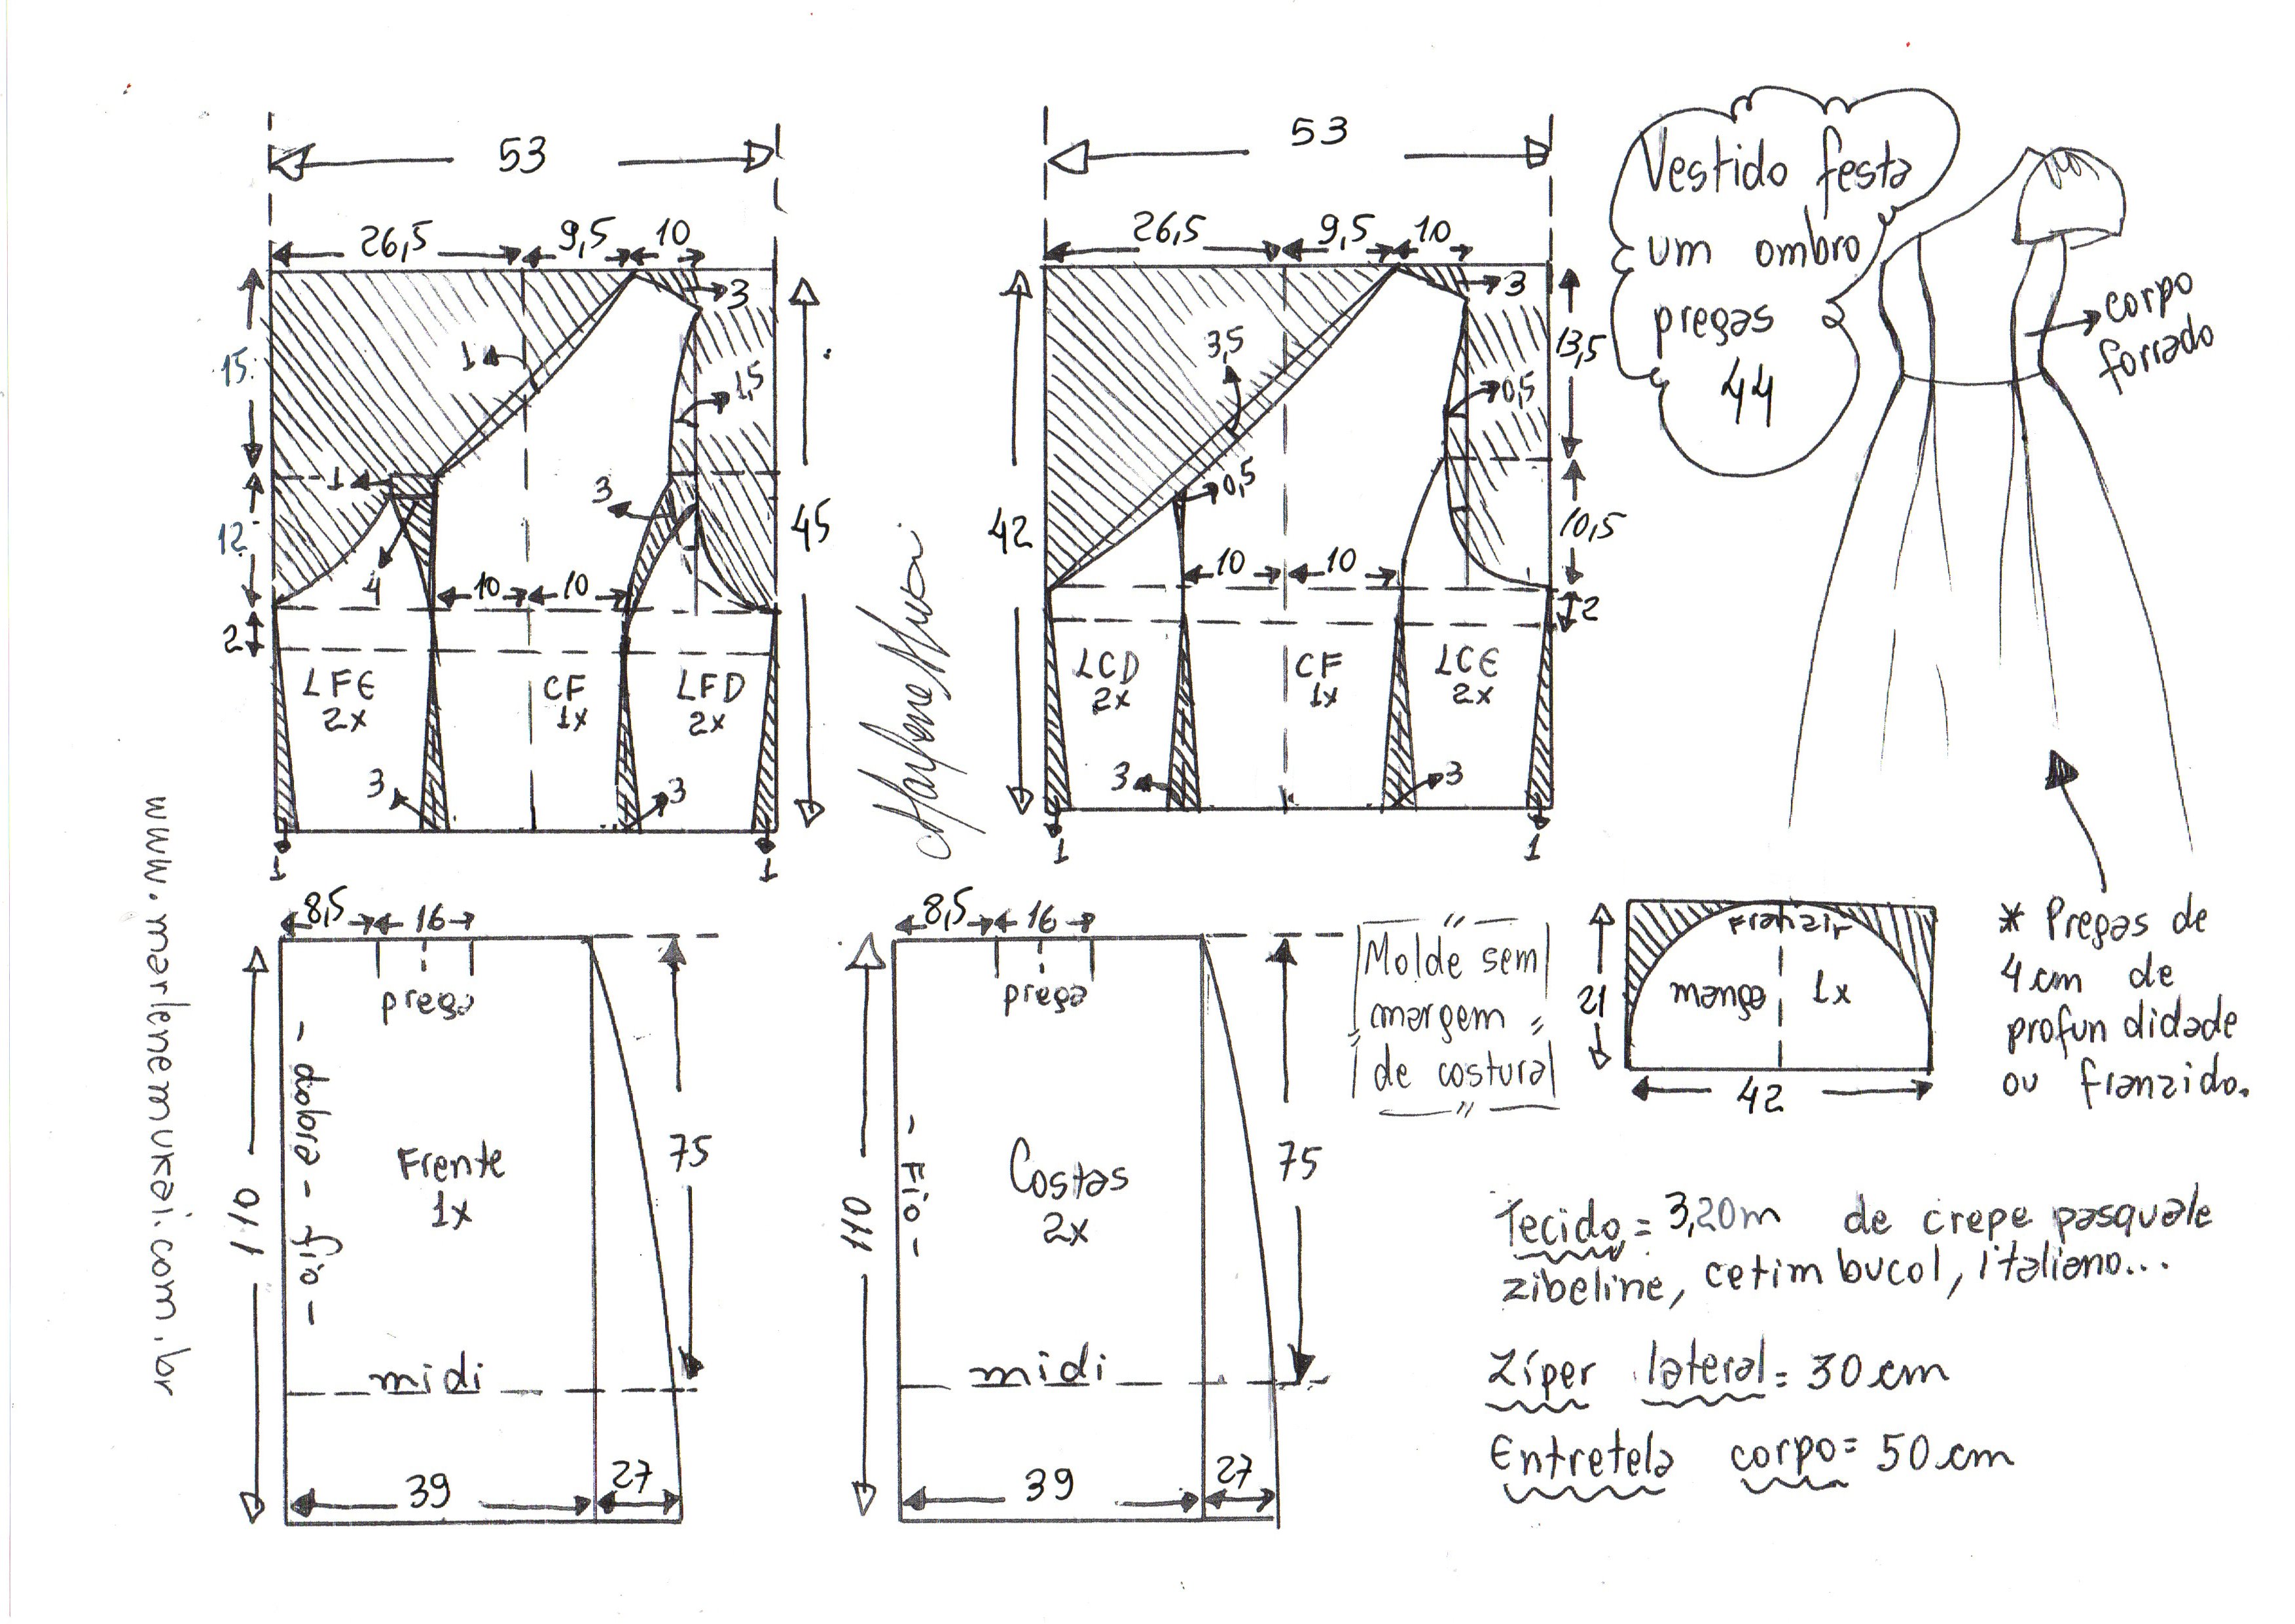 53
26,5
9,5
10
3
1
1,5
15
12
2
1
4
3
10
10
45
LFE
2x
CF
1x
LFD
2x
3
3
1
1
53
26,5
9,5
10
3
3,5
0,5
0,5
42
13,5
10,5
2
10
10
LCD
2x
CF
1x
LCE
2x
3
3
1
1
Marlene Mukai
www.marlenemukai.com.br
Vestido festa
um ombro
pregas
44
corpo
forrado
8,5
16
prega
110
- dobra - fio -
Frente
1x
75
midi
39
27
8,5
16
prega
110
- Fio -
Costas
2x
75
midi
39
27
Molde sem
margem
de costura
Franzir
manga
1x
21
42
* Pregas de
4cm de
profundidade
ou franzido.
Tecido = 3,20m de crepe pasquale
zibeline, cetim bucol, italiano...
Zíper lateral = 30cm
Entretela corpo = 50cm